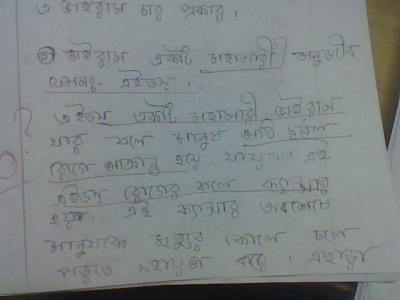 এ ভাইরাস চার প্রকার ।
ভাইরাস একটি মহামারী অনুজীব
যেমনঃ- এইডস ।
এইডস একটি মহামারী ভাইরাস
যার ফলে মানুষ অতি দ্রুত
রোগে আক্রান্ত হয়ে যায় । এই
এইডস রোগের ফলে ক্যান্সার
হয় । এই ক্যান্সার অবশেষে
মানুষকে মৃত্যুর কোলে ঢলে
পড়তে সহায়তা করে । এছাড়া